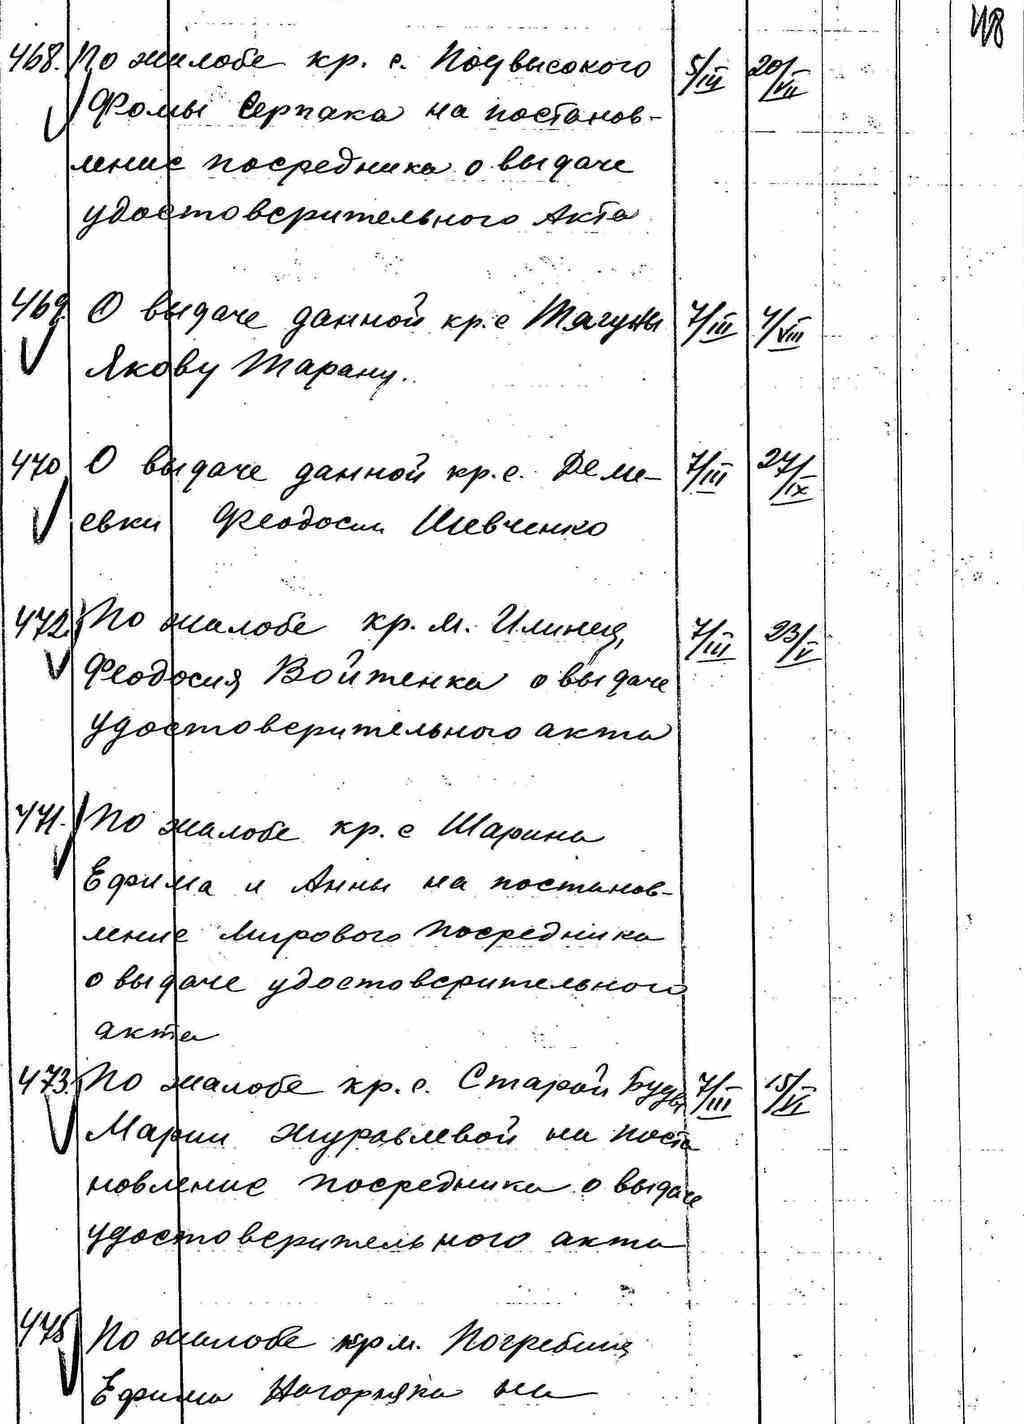 48
468. По жалобе кр. с. Подвысокого 5/III 20/VII
Фомы Серпака на постанов-
ление посредника о выдаче
удостоверительного Акта
469. О выдаче данной кр. с Тягуны 7/III 4/VIII
Якову Тарану.
470 О выдаче данной кр. с. Деме- 7/III 27/IX
евки Феодосии Шевченко
472. По жалобе кр. м. Илинец 7/III 23/V
Феодосия Войтенка о выдаче
удостоверительного акта
471. По жалобе кр. с Шарина
Ефима и Анны на постанов-
ление Мирового посредника
о выдаче удостоверительного
акта
473. По жалобе кр. с. Старой Буды 7/III 15/VI
Марии Журавлевой на поста
новление посредника о выдаче
удостоверительного акта
475 По жалобе кр м. Погребищ
Ефима Нагорняка на